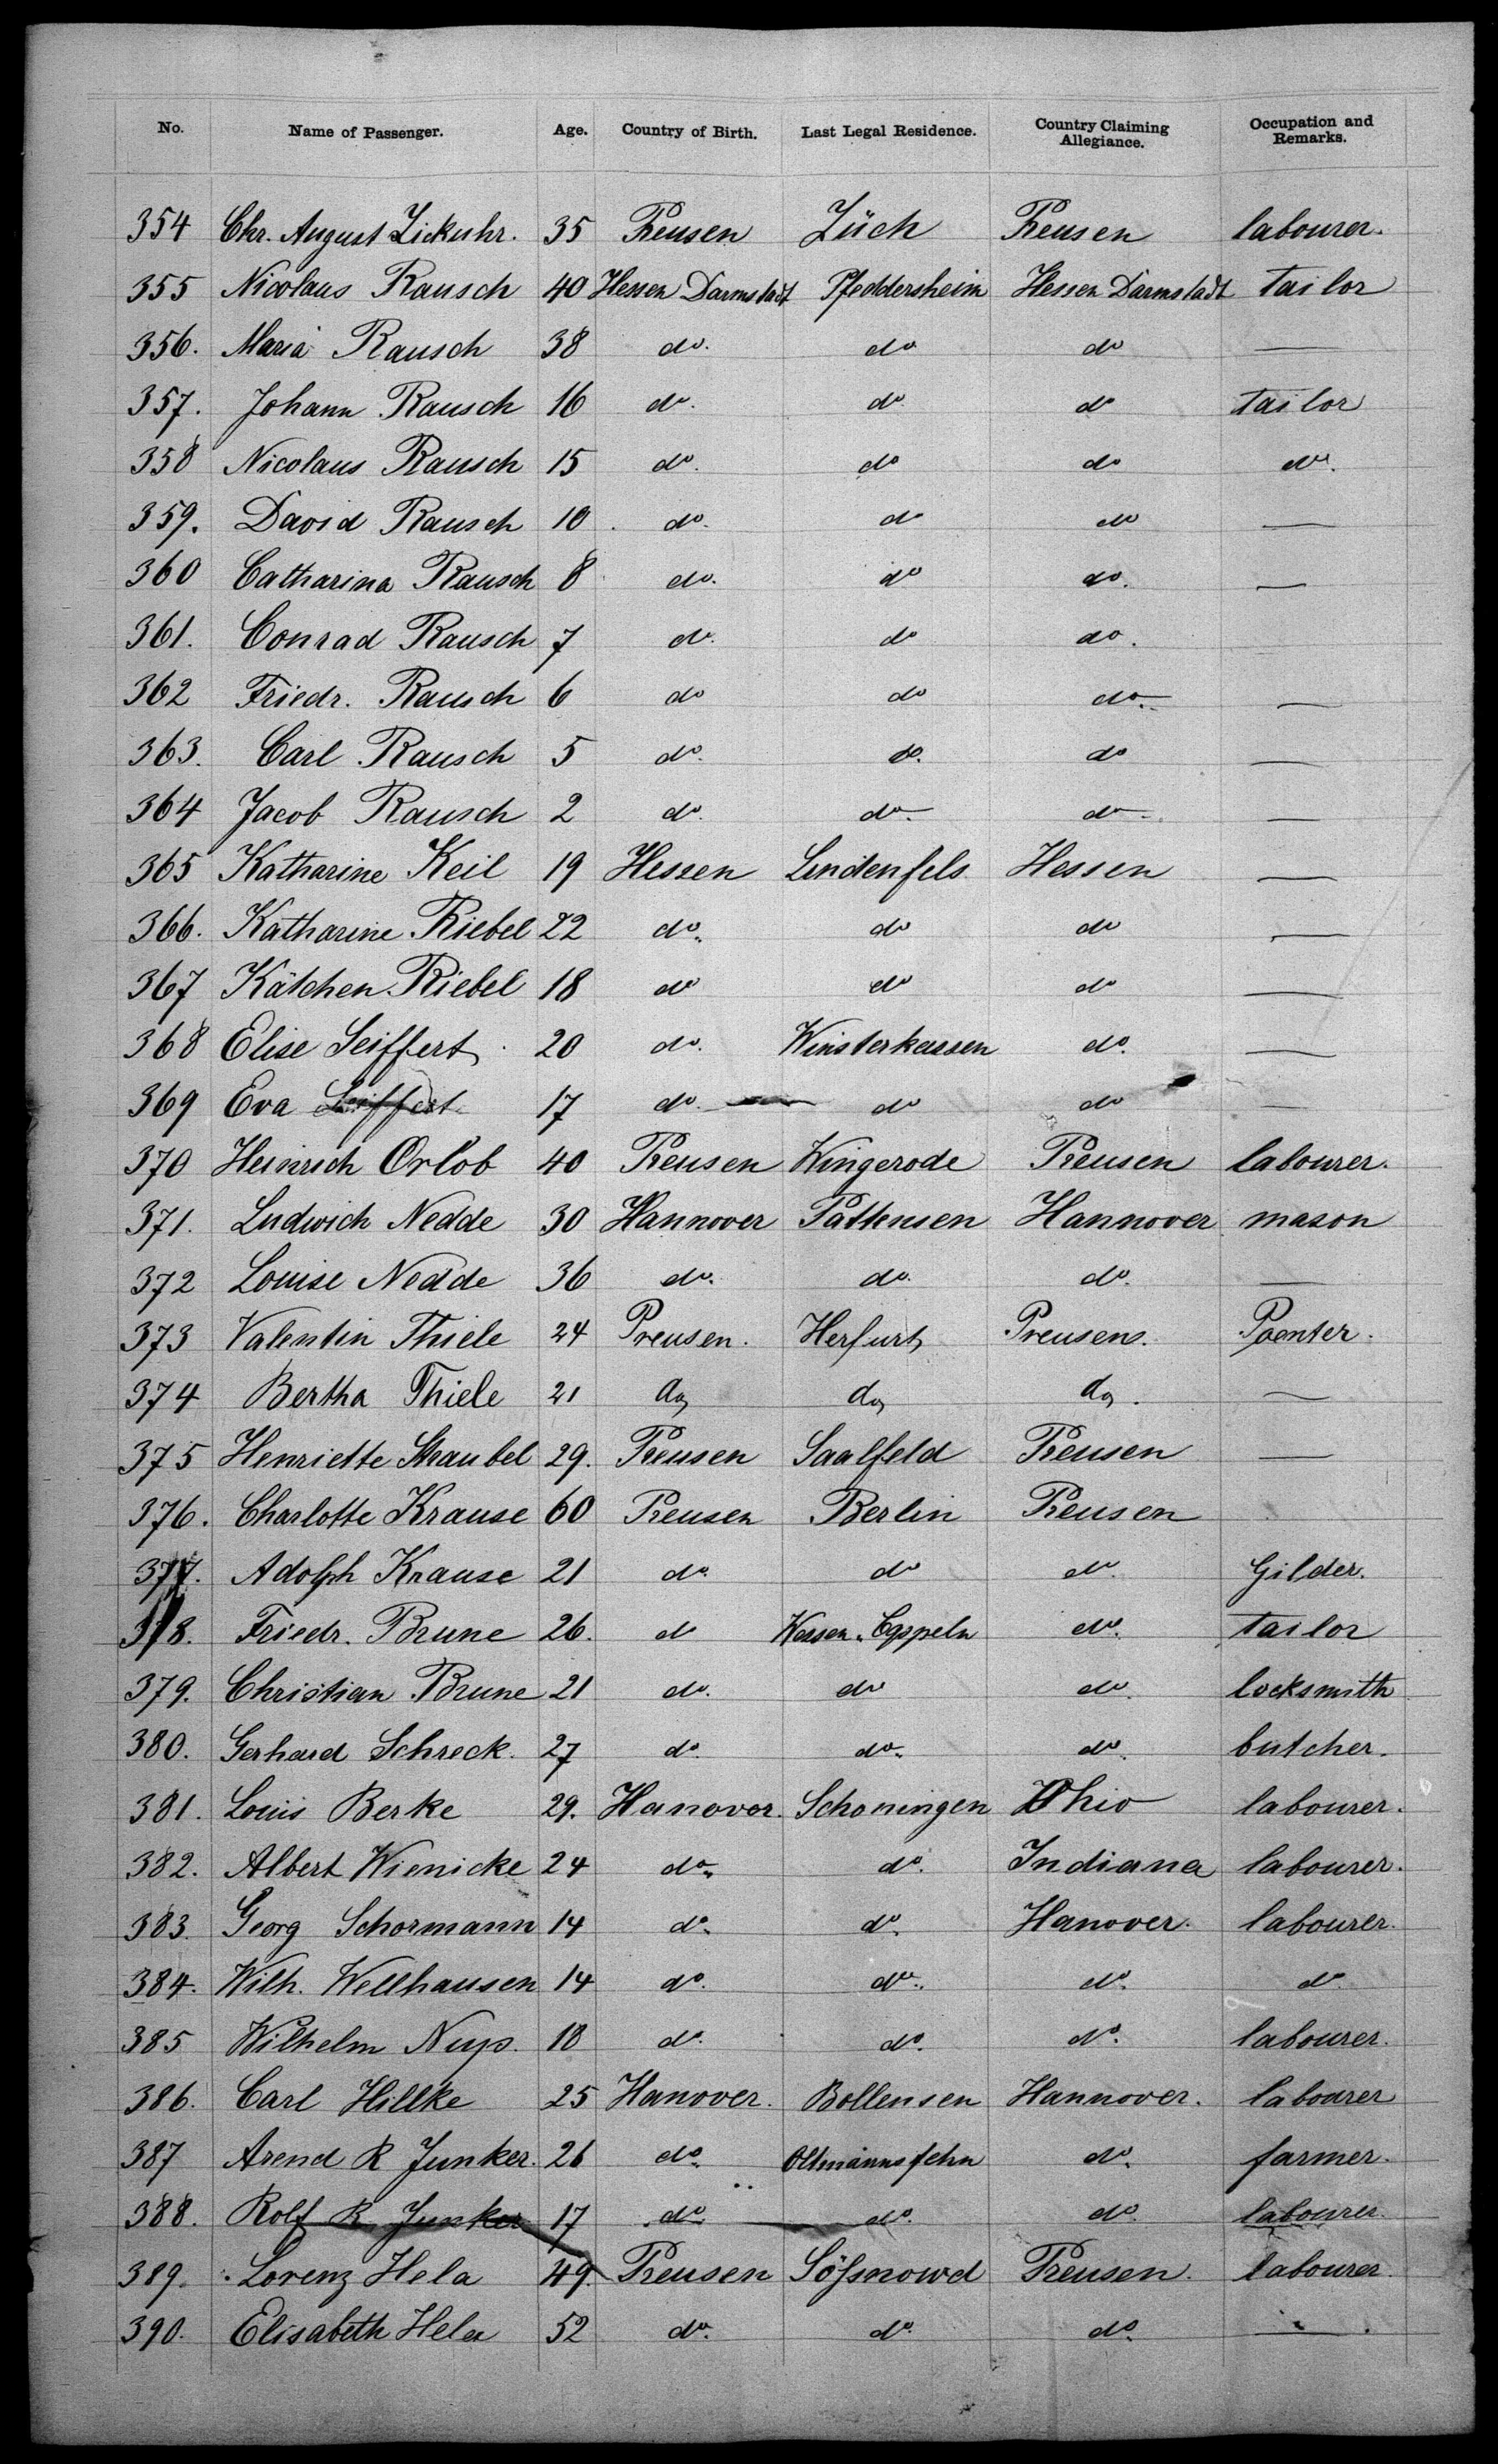 No. Name of Passenger. Age. Country of Birth. Last Legal Residence. Country Claiming Allegiance. Occupation and Remarks.
354 Chr. August Zickuhr. 35 Preusen Züch Preusen labourer.
355 Nicolaus Rausch 40 Hessen Darmstadt Pfeddersheim Hessen Darmstadt tailor
356. Maria Rausch 38 do. do do —
357. Johann Rausch 16 do. do do tailor
358 Nicolaus Rausch 15 do. do do do.
359. David Rausch 10 do. do do —
360 Catharina Rausch 8 do. do do. —
361. Conrad Rausch 7 do. do do.
362 Friedr. Rausch 6 do do do. —
363. Carl Rausch 5 do. do. do —
364 Jacob Rausch 2 do. do. do. —
365 Katharine Keil 19 Hessen Lindenfels Hessen —
366. Katharine Riebel 22 do. do do —
367 Kätchen Riebel 18 do do do —
368 Elise Seiffert 20 do. Winsterkassen do. —
369 Eva Seiffert 17 do. do do —
370 Heinrich Orlob 40 Preusen Wingerode Preusen labourer.
371. Ludwich Nedde 30 Hannover Pattensen Hannover mason
372 Louise Nedde 36 do. do. do. —
373 Valentin Thiele 24 Preusen. Herfurt Preusens. Poenter.
374 Bertha Thiele 21 do do do. —
375 Henriette Straubel 29. Preusen Saalfeld Preusen —
376. Charlotte Krause 60 Preusen Berlin Preusen
377. Adolph Krause 21 do. do do. Gilder.
378. Friedr. Brune 26. do do. tailor
379. Christian Brune 21 do. do do. locksmith
380. Gerhard Schreck. 27 do. do. do. butcher.
381. Louis Berke 29. Hanover. Schoningen Ohio labourer.
382. Albert Wienicke 24 do. do. Indiana labourer.
383. Georg Schormann 14 do. do. Hanover. labourer.
384. Wilh. Wellhausen 14 do. do. do. do.
385 Wilhelm Nup. 18 do. do. do. labourer.
386. Carl Hillke 25 Hanover. Bollensen Hannover. labourer
387 Arend R Junker. 26 do. Oltmannsfehn do. farmer.
388. Rolf R Junker 17 do. do. do. labourer.
389. Lorenz Hela 49. Preusen Preusen. labourer.
390. Elisabeth Hela 52 do. do. do. —